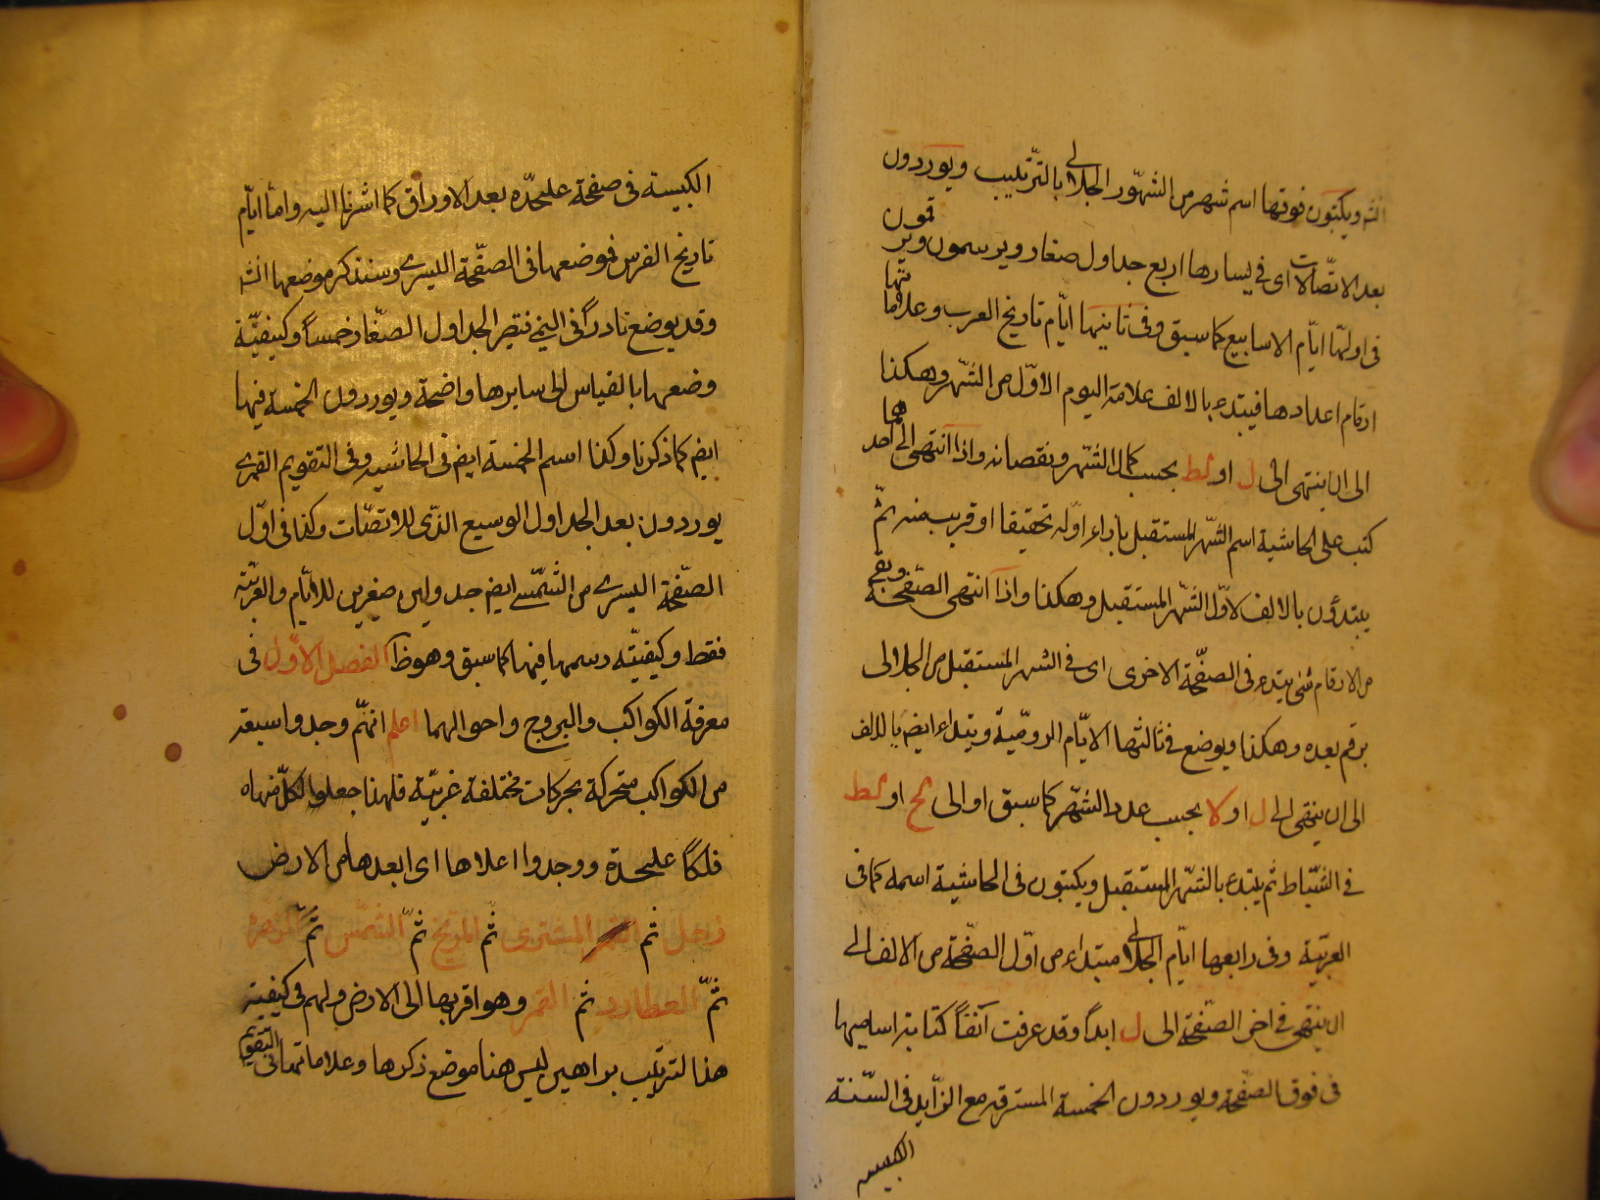 ويكتبون فوقها اسم شهر من الشهور الجلالى بالترتيب ويوردون
بعد الاتصالات اى فى يسارها اربع جداول صغار ويرسمون ويرقمون
فى اولها ايام الاسابيع كما سبق وفى ثانيتها ايام تاريخ العرب وعلاماتها
ارقام اعدادها فيبتدء بالالف علامة اليوم الاول من الشهر وهكذا
الى ان ينتهى الى ل او لط بحسب كمال الشهر ونقصانه واذا انتهى الى احدهما
كتب على الحاشية اسم الشهر المستقبل بأزاء اوله تحقيقا او قريب منه ثم
يبتدؤن بالالف لاول الشهر المستقبل وهكذا واذا انتهى الصفحة وبقى
من الارقام شئ يبتدء فى الصفحة الاخرى اى فى الشهر المستقبل من الجلالى
برقم بعده وهكذا ويوضع فى ثالثتها الايام الرومية ويبتداء ايض بالالف
الى ان ينتهى الى ل او لا بحسب عدد الشهر كما سبق او الى لح او لط
فى الشباط ثم يبتدء بالشهر المستقبل ويكتبون فى الحاشية اسمه كما فى
العربية وفى رابعها ايام الجلالى مبتداء من اول الصفحة من الالف الى
ان ينتهى فى اخر الصفحة الى ل ابدا وقد عرفت آنفاً كتابة اساميها
فى فوق الصفحة ويوردون الخمسة المسترقة مع الزايد فى السنة
الكبيسه
الكبيسة فى صفحة عليحده بعد الاوراق كما اشرنا اليه واما ايام
تاريخ الفرس فموضعها فى الصفحة اليسرى وسنذكر موضعها انش
وقد يوضع نادرا فى اليمنى فتصير الجداول الصغار خمساً وكيفية
وضعها بالقياس الى سايرها واضحة ويوردون الخمسة فيها
ايض كما ذكرنا وكذا اسم الخمسة ايض فى الحاشيه وفى التقويم القمرى
يوردون بعد الجداول الوسيع الذى للاتصات وكذا فى اول
الصفحة اليسرى من الشمسى ايض جدولين صغيرين للايام والعربية
فقط وكيفيته رسمها فيها كما سبق وهو ظ الفصل الاول فى
معرفة الكواكب والبروج واحوالهما اعلم انهم وجدوا سبعة
من الكواكب متحركة بحركات مختلفة غربية فلهذا جعلوا لكل منها
فلكاً عليحدة ووجدوا اعلاها اى ابعدها من الارض
زحل ثم المشترى ثم المريخ ثم الشمس ثم الزهرة
ثم العطارد ثم القمر وهو اقربها الى الارض ولهم فى كيفية
هذا لترتيب براهين ليس هنا موضع ذكرها وعلاماتها فى التقويم